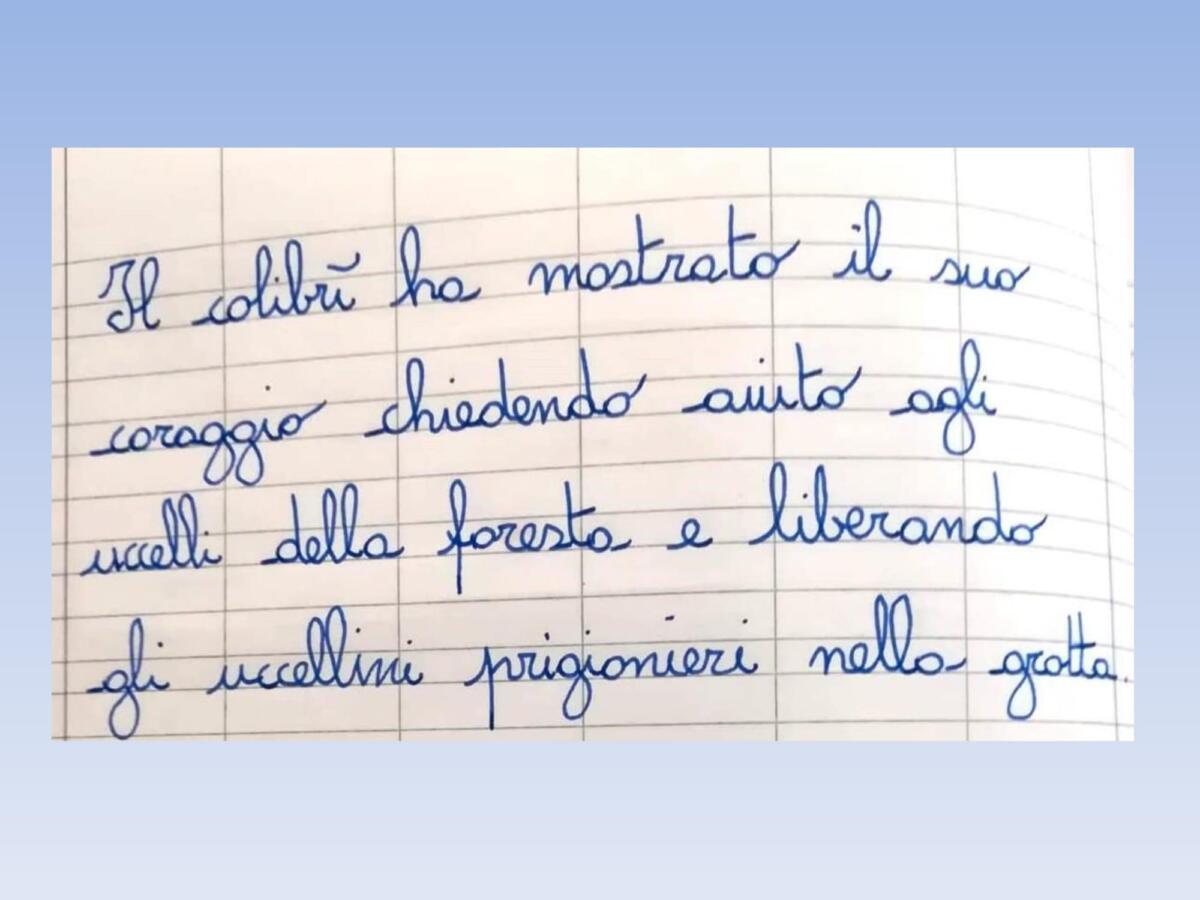 Il colibrì ha mostrato il suo
coraggio chiedendo aiuto agli
uccelli della foresta e liberando
gli uccellini prigionieri nella grotta.